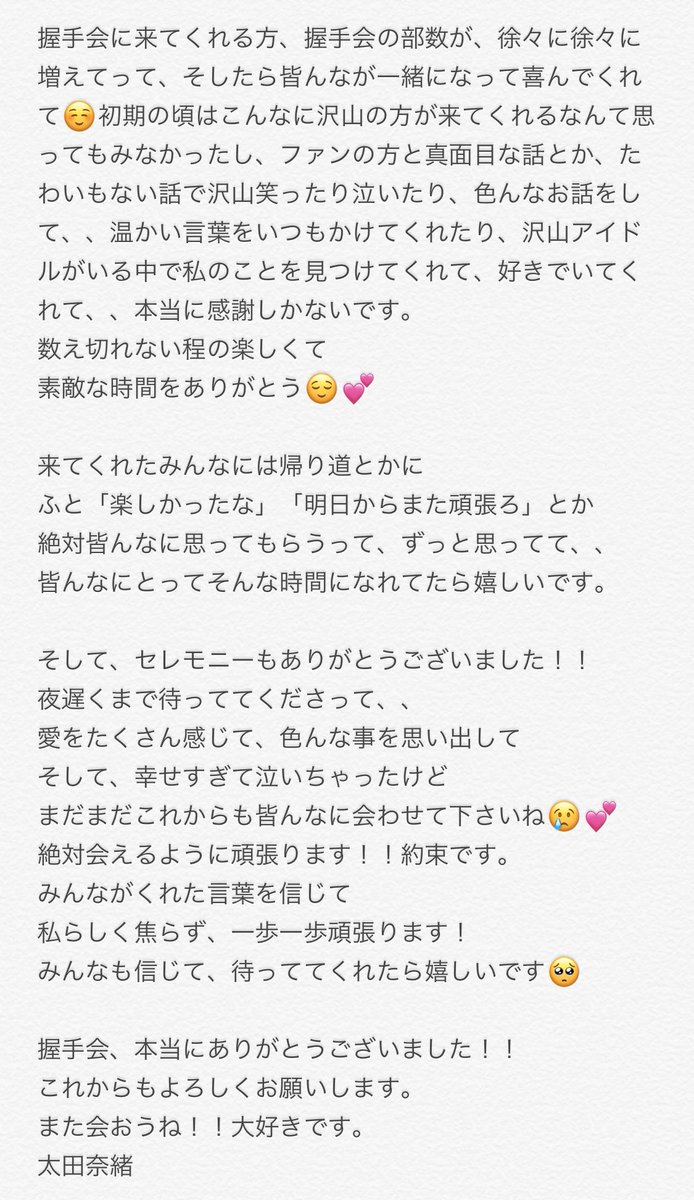 握手会に来てくれる方、握手会の部数が、徐々に徐々に
増えてって、そしたら皆んなが一緒になって喜んでくれ
て☺️初期の頃はこんなに沢山の方が来てくれるなんて思
ってもみなかったし、ファンの方と真面目な話とか、た
わいもない話で沢山笑ったり泣いたり、色んなお話をし
て、、温かい言葉をいつもかけてくれたり、沢山アイド
ルがいる中で私のことを見つけてくれて、好きでいてく
れて、、本当に感謝しかないです。
数え切れない程の楽しくて
素敵な時間をありがとう😌💕
来てくれたみんなには帰り道とかに
ふと「楽しかったな」「明日からまた頑張ろ」とか
絶対皆んなに思ってもらうって、ずっと思ってて、、
皆んなにとってそんな時間になれてたら嬉しいです。
そして、セレモニーもありがとうございました！！
夜遅くまで待っててくださって、、
愛をたくさん感じて、色んな事を思い出して
そして、幸せすぎて泣いちゃったけど
まだまだこれからも皆んなに会わせて下さいね😢💕
絶対会えるように頑張ります！！約束です。
みんながくれた言葉を信じて
私らしく焦らず、一歩一歩頑張ります！
みんなも信じて、待っててくれたら嬉しいです🥺
握手会、本当にありがとうございました！！
これからもよろしくお願いします。
また会おうね！！大好きです。
太田奈緒